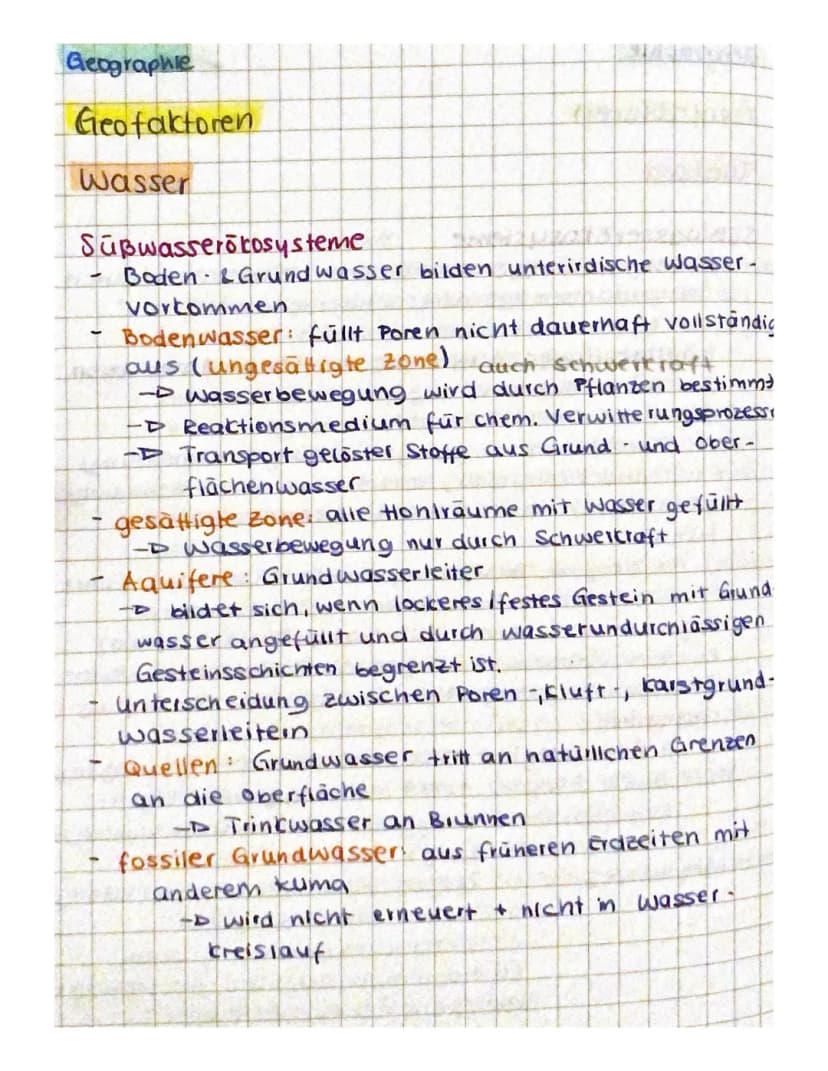 Geographie
Geofaktoren
Wasser
Süßwasserökosysteme
- Boden- & Grundwasser bilden unterirdische Wasser-
vorkommen
- Bodenwasser: füllt Poren nicht dauerhaft vollständig
aus (ungesättigte Zone) auch Schwerkraft
→ Wasserbewegung wird durch Pflanzen bestimmt
→ Reaktionsmedium für chem. Verwitterungsprozesse
→ Transport gelöster Stoffe aus Grund- und Ober-
flächenwasser
- gesättigte Zone: alle Hohlräume mit Wasser gefüllt
→ Wasserbewegung nur durch Schwerkraft
- Aquifere: Grundwasserleiter
→ bildet sich, wenn lockeres/festes Gestein mit Grund
wasser angefüllt und durch wasserundurchlässigen
Gesteinsschichten begrenzt ist.
- Unterscheidung zwischen Poren-, Kluft-, Karstgrund-
wasserleitern
- Quellen: Grundwasser tritt an natürlichen Grenzen
an die Oberfläche
→ Trinkwasser an Brunnen
- fossiler Grundwasser: aus früheren Erdzeiten mit
anderem Klima
→ wird nicht erneuert + nicht in Wasser-
kreislauf